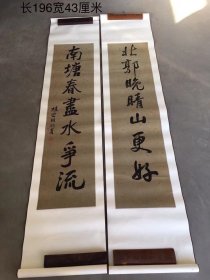 长196宽43厘米
北郭晚晴山更好
南塘春尽水争流